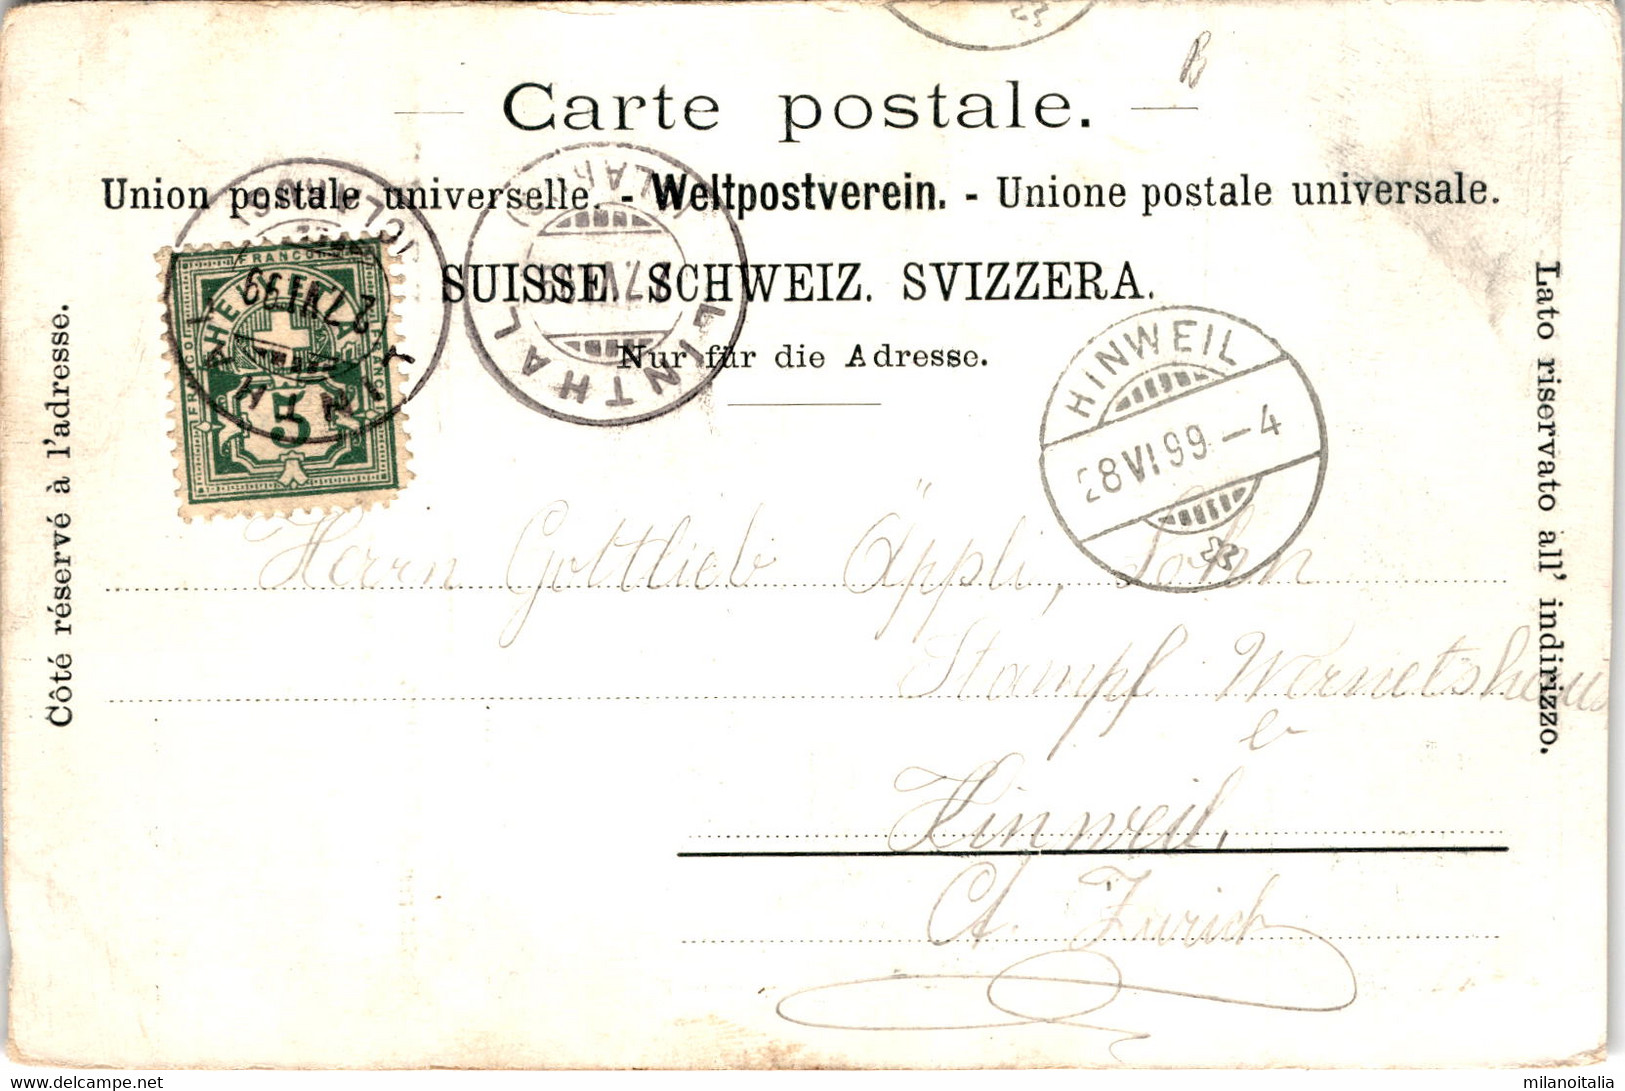 Carte postale.
Union postale universelle. - Weltpostverein. - Unione postale universale.
SUISSE. SCHWEIZ. SVIZZERA.
Nur für die Adresse.
Côté réservé à l'adresse.
Lato riservato all' indirizzo.
FRANCO
HELVETIA
5
LINTHAL
(GLARUS)
LINTHAL
HINWEIL
28 VI 99 - 4
Herrn Gottlieb Äppli, Sohn
Stampf Wernetshaus
Hinweil,
Ct. Zürich
milanoitalia